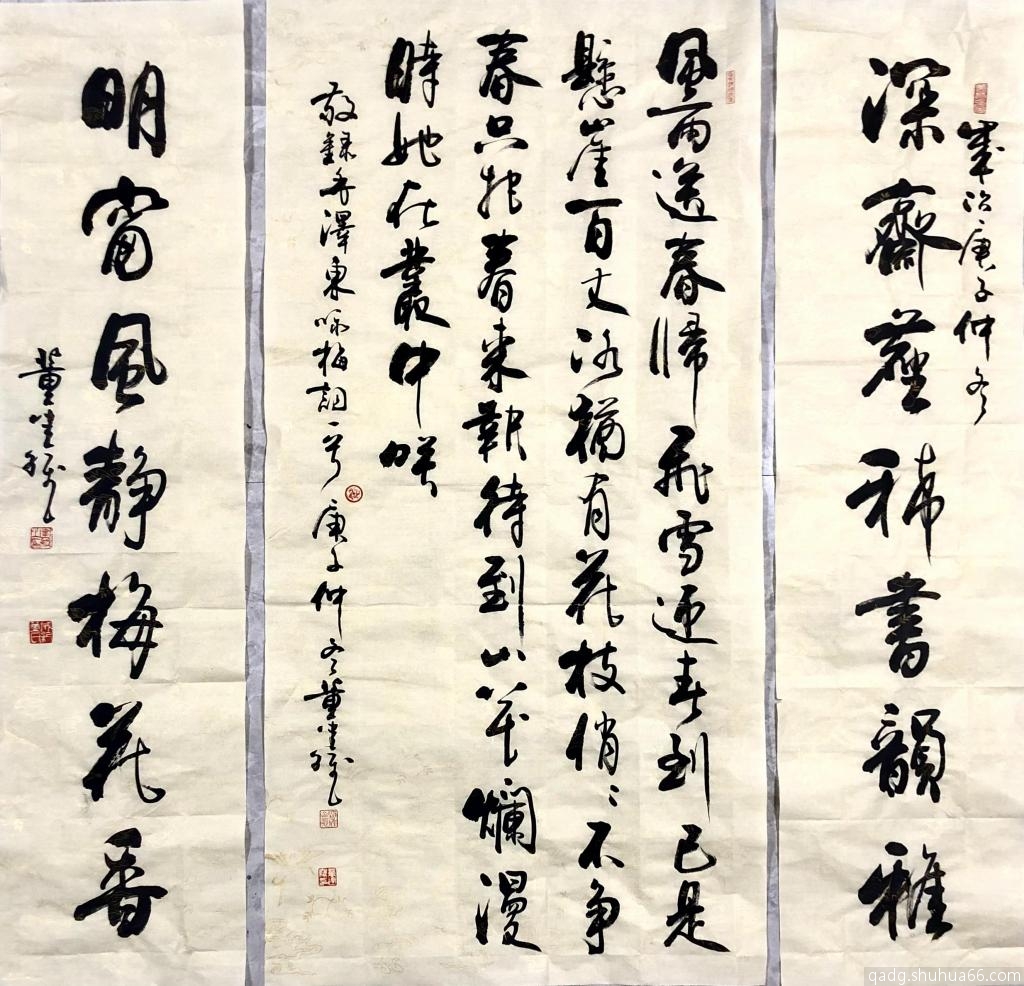 歲次庚子仲冬
深齋塵稀書韻雅
風雨送春歸飛雪迎春到已是
懸崖百丈冰猶有花枝俏〻不爭
春只把春來報待到山花爛漫
時她在叢中咲
敬錄毛澤東咏梅詞一首庚子仲冬董
明窗風静梅花香
董
qadg.shuhua66.com